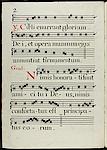 2.
℣. Cæli enarrant gloriam
De i, et opera manuum ejus
annuntiat firmamentum.
Grad.
Nimis honorati sunt
ami ci tu i De us, nimis
confortatus est principa
tus eorum.